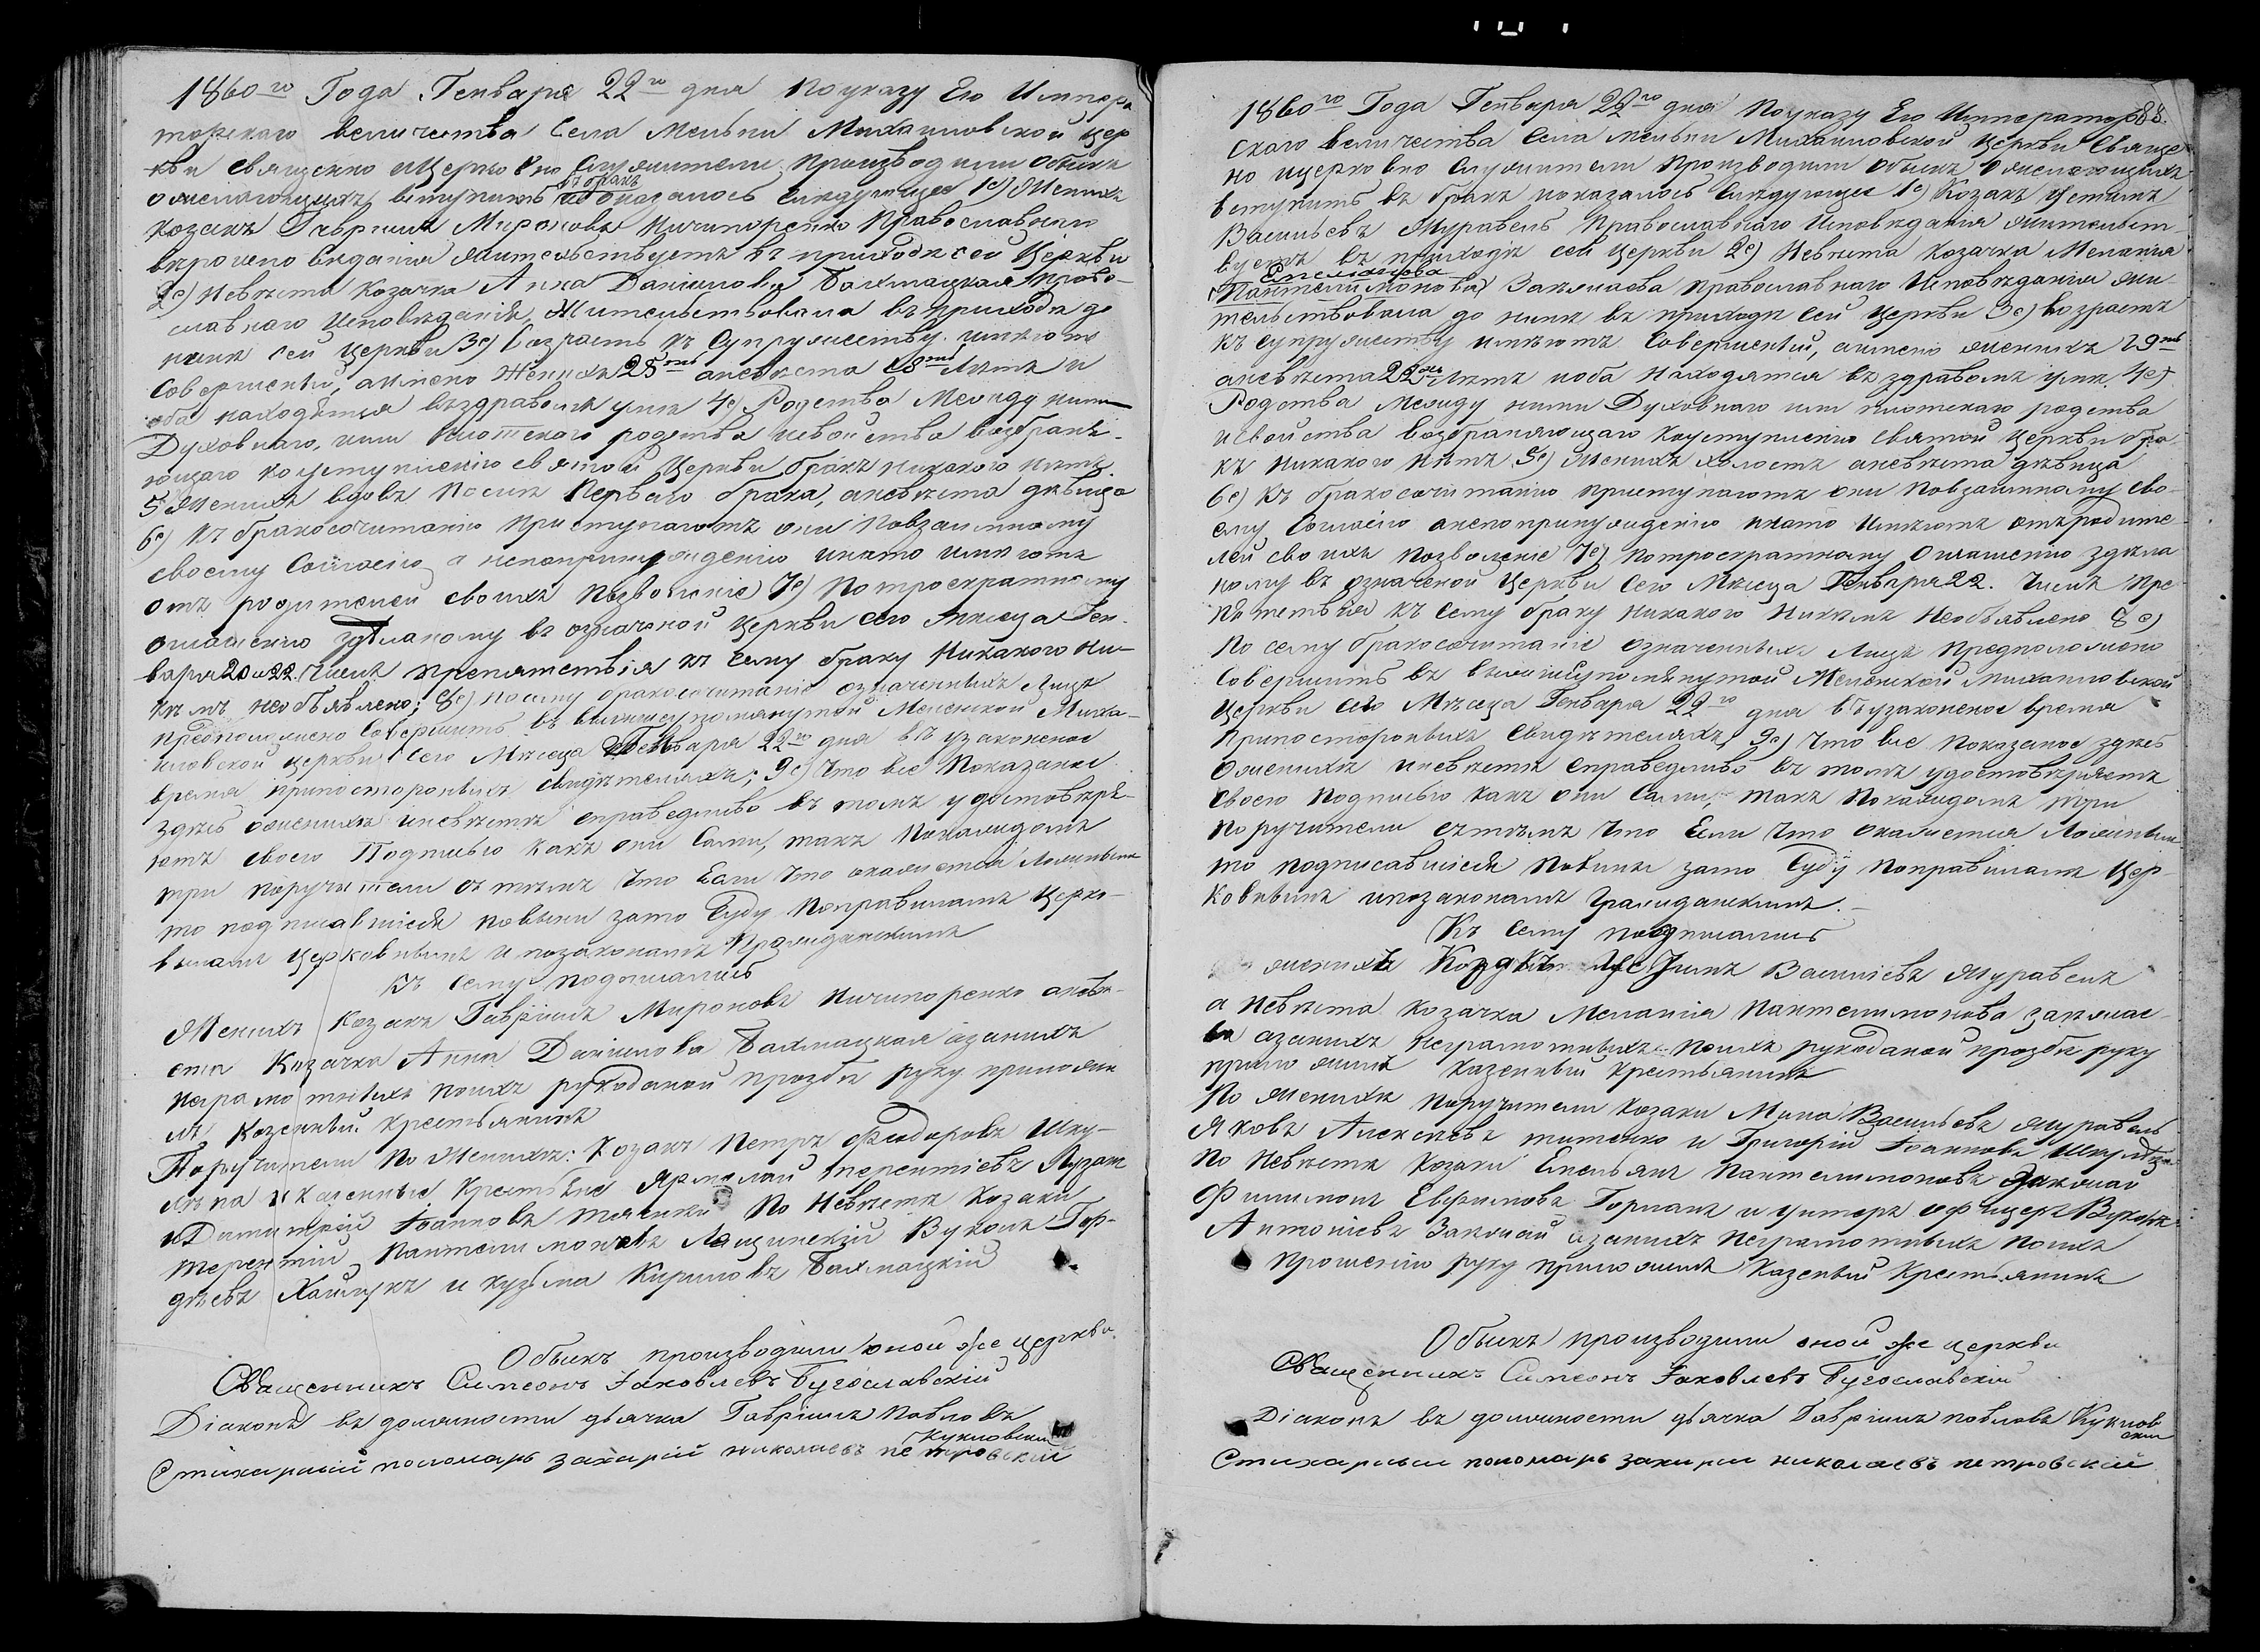 1860го Года Генваря 22го дня По указу Его Импера
торскаго величества Села Мельни Михаиловской цер
кви священно ицерковно Служители Производили Обыкъ
ожелающихъ вступить въ бракъ ипоказалось Слѣдующее 1е) Женихъ
Козакъ Гавріилъ Мироновъ Ничипоренко Православнаго
вѣроисповѣданія жительствуетъ въ приходѣ сей Церкви
2е) Невѣста Козачка Анна Даниилова Бахмацкая Право-
славнаго Исповѣданія Жительствовала въ приходѣ до
нынѣ сей Церкви 3е) Возрастъ къ Супружеству имѣютъ
Совершенный, аимено Женихъ 25ть аневѣста 18ть Лѣтъ и
оба находятся въздравомъ умѣ 4е) Родства Между ними
Духовнаго, или плотскаго родства исвойства возбраня-
ющаго по установленію святой Церкви бракъ никакого нѣтъ.
5 Женихъ вдовъ Послѣ Перваго брака, аневѣста дѣвица
6е) Къ бракосочитанію приступаютъ они Повзаимному
своему Согласію а непопринужденію инато имѣютъ
отъ родителей своихъ позволеніе 7е) По троекратному
оглашенію здѣланому въ означеной Церкви сего Мѣсяца Ген-
варя 20 и 22. Числѣ препятствія къ сему браку Никакого Ни-
кѣмъ необъявлено; 8е) посему бракосочитаніе означенныхъ Лицъ
предположено Совершить въ вышеупомянутой Меленской Миха-
иловской церкви Сего Мѣсяца Генваря 22го дня въ узаконеное
время припостороннихъ свидѣтеляхъ; 9е) Что все Показаное
здѣсь ожених иневѣстѣ справедливо въ томъ удостовѣря-
ютъ своею Подписью какъ они Сами, такъ Покаждомъ
три поручители стѣмъ Что Если Что окажется Ложнымъ
то подписавшіеся повины зато Суду Поправиламъ Церко-
внымъ Церковнымъ и позаконамъ Гражданскимъ
Къ сему подписались
Женихъ Козакъ Гавріилъ Мироновъ Ничипоренко аневѣ-
ста Козачка Анна Даниилова Бахмацкая азанихъ
неграмотныхъ поихъ рукоданой прозбѣ руку приложи
лъ Козенный Крестьянинъ
Поручители По Женихѣ: Козакъ Петръ Федоровъ Шку-
и казенные Крестьяне Ярмолай Терентіевъ
иДимитрій Іоанновъ По Невѣстѣ Козаки
Терентій Пантелимоновъ Лащинскій Вуколъ Гор-
дѣевъ и Кузьма Кириловъ Бахмацкій
Обыкъ производили оной же церкви.
Священникъ Симеонъ Іаковлевъ Бугославскій
Діаконъ въ должности дьячка Гавріилъ Павловъ
Кукловскій
Стихарный пономарь захарій николаевъ петровскій
1860го Года Генваря 22го дня По указу Его Император
88.
скаго величества Села Мельни Михаиловской Церкви Свяще
но ицерковно Служители Производили Обыкъ Ожелающихъ
вступить въ бракъ ипоказалось Слѣдующее 1е) Козакъ Устинъ
Васильевъ Журавель Православнаго Исповѣданія жительст-
вуетъ въ приходѣ сей Церкви 2е) Невѣста Козачка Меланія
Емельянова
(Пантелимонова) Заклаева православнаго Исповѣданія жи-
тельствовала до нынѣ въ приходѣ Сей Церкви 3е) Возрастъ
къ супружеству имѣютъ Совершенный, аимено женихъ 29ть
аневѣста 22ть Лѣтъ иоба находятся въ здравомъ умѣ. 4е)
Родства Между ними Духовнаго или плотскаго родства
исвойства возбраняющаго по установленію святой Церкви бра
къ Никакого Нѣтъ 5е) Женихъ холостъ аневѣста дѣвица
6е) Къ бракосочитанію приступаютъ они повзаимному сво-
ему Согласію анепопринужденію инато Имѣютъ отъродите-
лей своихъ позволеніе 7е) потроекратному Оглашенію здѣла
ному въ означеной Церкви Сего Мѣсяца Генваря 22. Числѣ Пре-
пятствія къ Сему браку Никакого Никѣмъ Необъявлено 8е)
По сему бракосочитаніе означенныхъ Лицъ Предположено
Совершить въ вышеупомянутой Меленской Михаиловской
Церкви Сего Мѣсяца Генваря 22го дня въузаконеное время
Припостороннихъ Свидѣтеляхъ, 9е) Что все Показаное здѣсь
Оженихѣ иневѣстѣ справедливо въ томъ удостовѣряютъ
своею подписью какъ они Сами, такъ Покаждомъ три
поручители стѣмъ Что Если Что окажется Ложнымъ
то подписавшіеся повины зато Суду Поправиламъ Цер-
ковнымъ ипозаконамъ Гражданскимъ.
Къ Сему подписались
женихъ Козакъ Устинъ Васильевъ Журавель
а Невѣста Козачка Меланія Пантелимонова Заклае-
ва азанихъ Неграмотныхъ поихъ рукоданой прозбѣ руку
приложилъ Казенный Крестьянинъ
По Женихѣ поручители Козаки Мина Васильевъ Журавель
Яковъ Алексѣевъ Титенко и Григорій Іоанновъ
По Невѣстѣ Козаки Емельянъ Пантелимоновъ Заклай
Филимонъ Ефимовъ Горкавъ и унтеръ офицеръ Вуколъ
Антоніевъ Заклай азанихъ Неграмотныхъ поихъ
прошенію руку приложилъ Казеный Крестьянинъ
Обыкъ производили оной же церкви
Священникъ Симеонъ Іаковлевъ Бугославскій
Діаконъ въ должности дьячка Гавріилъ павловъ Куклов
скій
Стихарный пономарь захарій николаевъ петровскій